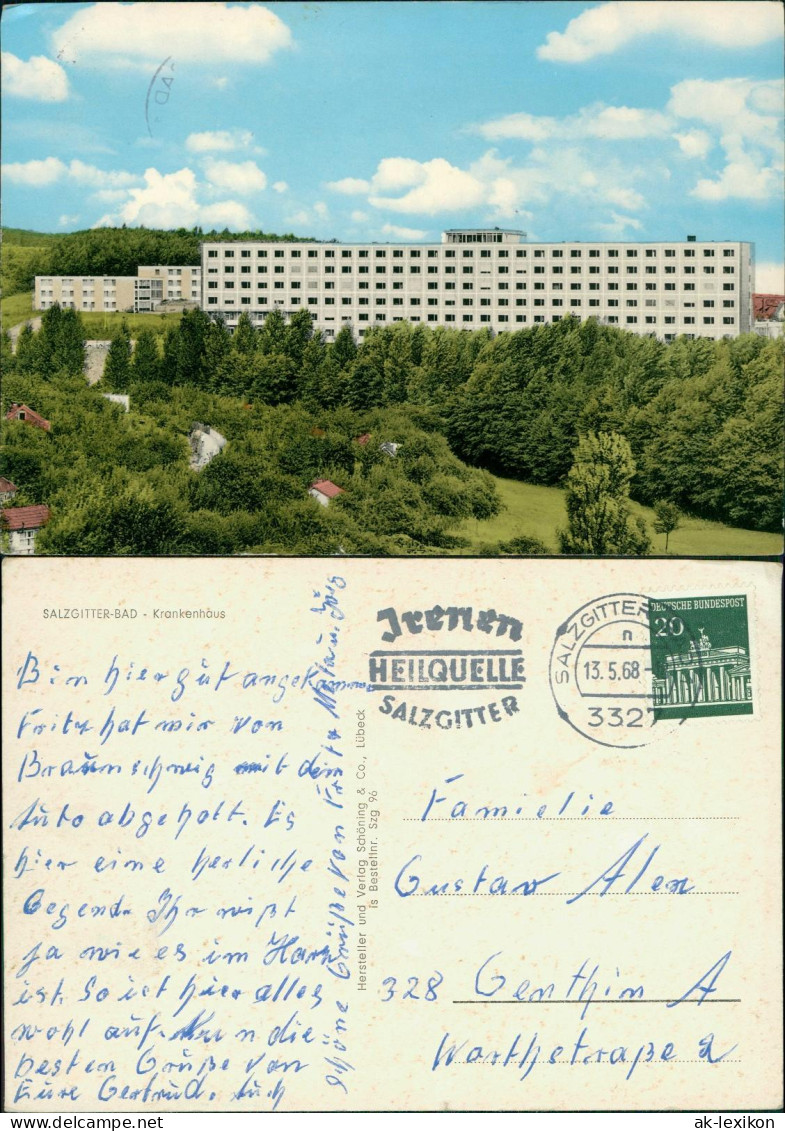 SALZGITTER-BAD - Krankenhaus
Bin hier gut angekommen
Fritz hat mir von
Braunschweig mit dem
Auto abgehollt. Es
hier eine herliche
Gegend. Ihr wißt
ja wie es im Harz
ist. So ist hier alles
wohl auf. Nun die
besten Grüße von
Eure Gertrud. Auch
schöne Grüße von Fritz
Hersteller und Verlag Schöning & Co., Lübeck
is Bestellnr. Szg 96
Irenen
HEILQUELLE
SALZGITTER
SALZGITTER
n
13.5.68
3327
DEUTSCHE BUNDESPOST
20
Famielie
Gustav Alex
328 Genthin A
Warthstraße 2
ak-lexikon